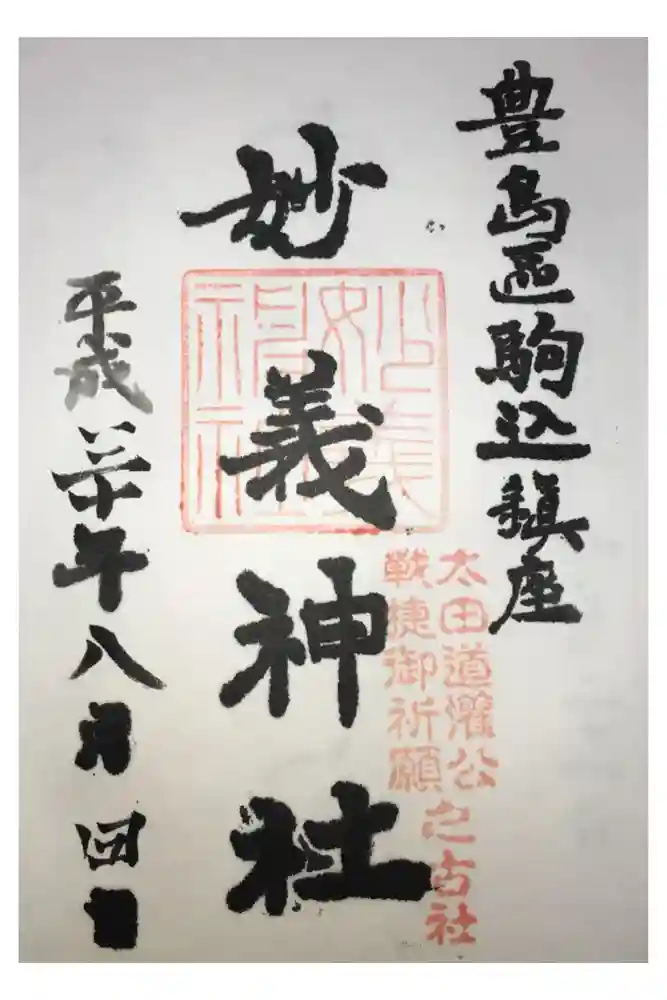 豊島區駒込鎮座
妙義神社
妙義神社
太田道灌公
戦捷御祈願
之古社
平成三十年八月四日